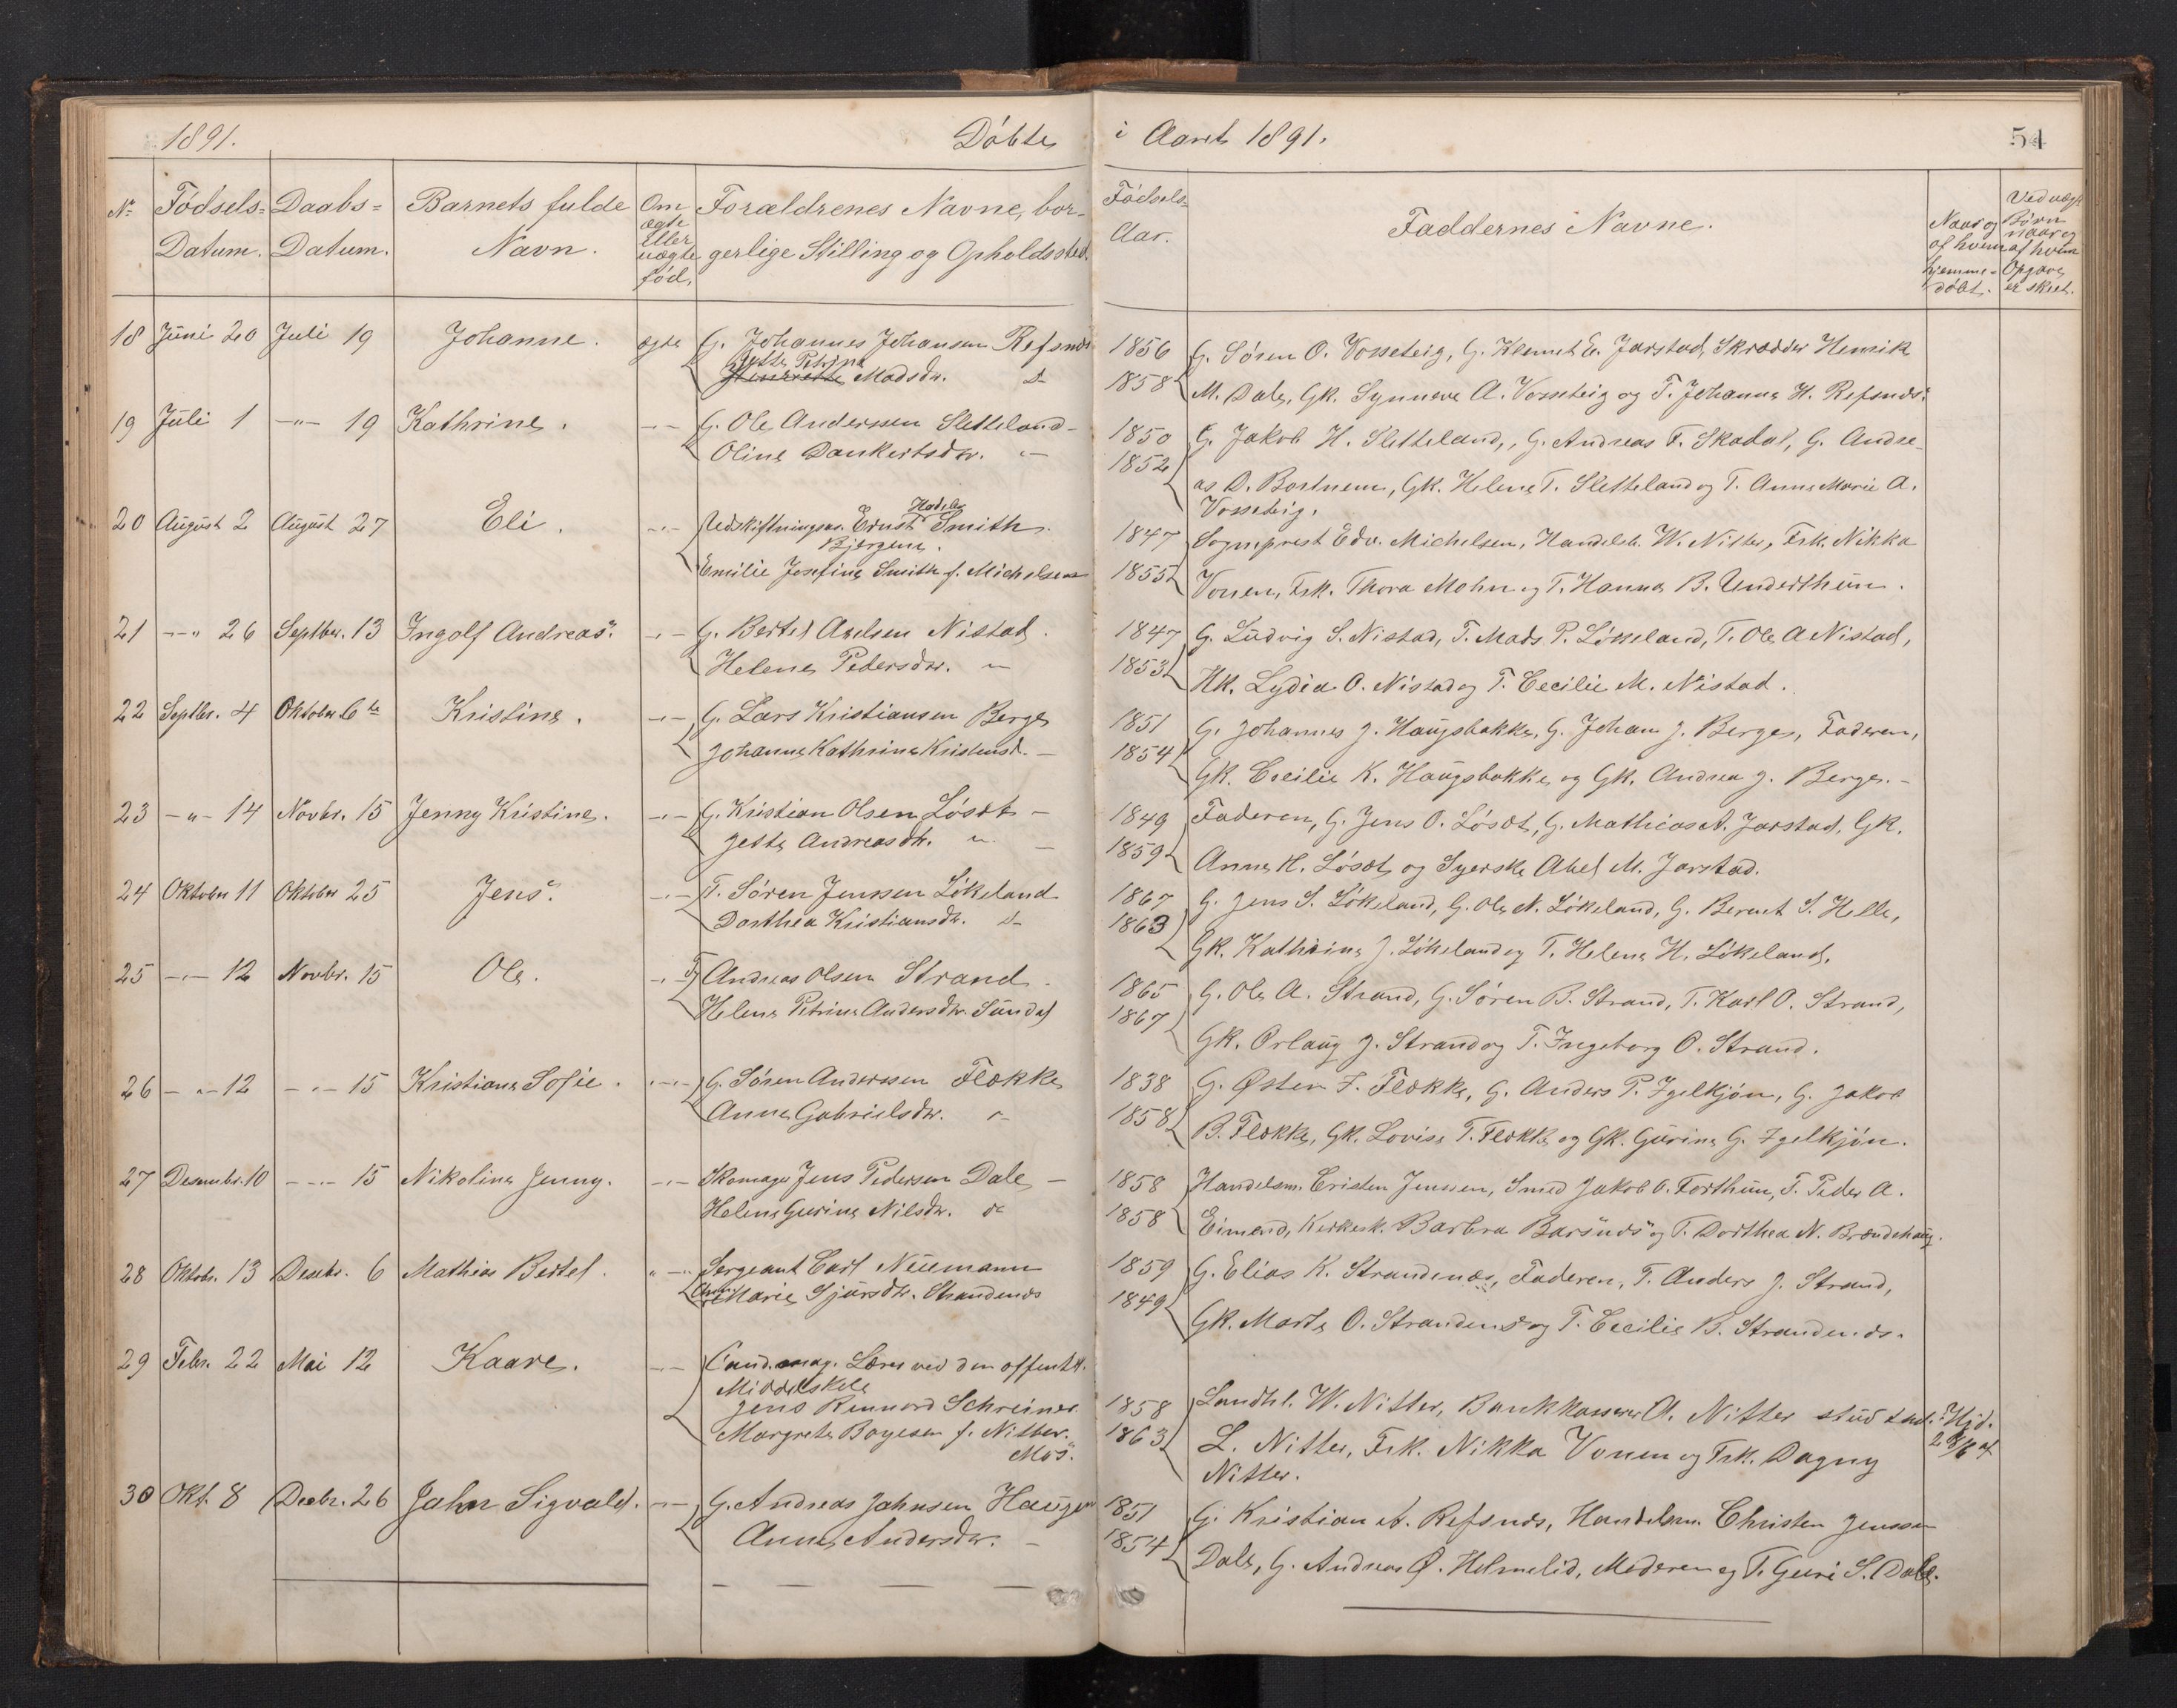 1891.
Döbte
i Aaret 1891.
54
No
Födsels-
Datum.
Daabs-
Datum.
Barnets fulde
Navn.
Om
ægte
eller
uægte
föd.
Forældrenes Navne, bor-
gerlige Stilling og Opholdssted.
Födsels-
Aar.
Faddernes Navne.
Naar og
af hvem
hjemme-
döbt.
Ved uægt.
Börn
naar og
af hvem
Opgave
er skeet.
18 Juni 20 Juli 19 Johanne. ægte G. Johannes Johansen Refsnes
Jette Petrine
Henriette Madsdr. d-
1856 G. Sören O. Vosseteig, G. Klemet E. Jarstad, Skrædder Henrik
1858 M. Dale, Gk. Synneve A. Vosseteig og T. Johanne H. Refsnæs.
19 Juli 1 -"- 19 Kathrine. -"- G. Ole Anderssen Sletteland -
Oline Dankertsdtr. "-
1850 G. Jakob H. Sletteland, G. Andreas F. Skadal, G. Andre-
1852 as D. Bortnem, Gk. Helene T. Sletteland og T. Anne Marie A.
Vosseteig.
20 August 2 August 27 Eli. -"- Udskiftningsas. Ernst Smith.
Bjergene.
Emilie Josefine Smith f. Michelsen
1847 Sogneprest Edv. Michelsen, Handelsb. W. Nitter, Frk. Nikka
1855 Vonen, Frk. Thora Mohn og T. Hanna B. Underthun.
21 -"- 26 Septber. 13 Ingolf Andreas. -"- G. Bertel Axelsen Nistad.
Helene Pedersdtr. "-
1847 G. Ludvig S. Nistad, T. Mads P. Lösseland, T. Ole A Nistad,
1853 Hk. Lydia O. Nistad og T. Cecilie M. Nistad.
22 Septbr. 4 Oktober 6te Kristine. -"- G. Lars Kristiansen Berge
Johanne Kathrine Kristensd. -
1851 G. Johannes J. Haugsbakke, G. Johan J. Berge, Faderen,
1854 Gk. Cecilie K. Haugsbakke og Gk. Andrea J. Berge. -
23 -"- 14 Novbr. 15 Jenny Kristine. -"- G. Kristian Olsen Lösæt -
Jette Andreasdtr. "-
1849 Faderen, G. Jens O. Lösæt, G. Mathias A. Jarstad, Gk.
1859 Anne H. Lösæt og Syerske Abel M. Jarstad.
24 Oktober 11 Oktober 25 Jens. -"- T. Sören Jenssen Lökeland
Dorthea Kristiansdtr. d-
1867 G. Jens S. Lökeland, G. Ole N. Lökeland, G. Berent S. Helle,
1863 Gk. Kathrine J. Lökeland og T. Helene H. Lökeland.
25 -"- 12 Novbr. 15 Ole. -"- T. Andreas Olsen Strand.
Helene Petrine Andersdtr. Sundal
1865 G. Ole A. Strand, G. Sören B. Strand, T. Karl O. Strand,
1867 Gk. Orlaug J. Strand og T. Ingeborg O. Strand.
26 -"- 12 -"- 15 Kristiane Sofie. -"- G. Sören Anderssen Flokke
Anne Gabrielsdtr. "-
1838 G. Østen F. Flokke, G. Anders P. Igelkjön, G. Jakob
1858 B. Flokke, Gk. Lovise T. Flokke og Gk. Gurine G. Igelkjön.
27 Desembr. 10 -"- 15 Nikoline Jenny. -"- Skomager Jens Pedersen Dale -
Helene Gurine Nilsdtr. d-
1858 Handelsm. Cristen Jenssen, Smed Jakob O. Forthun, T. Peder A.
1858 Eimend, Kirkesk. Barbra Barsnæs og T. Dorthea N. Brændehaug.
28 Oktobr. 13 Desebr. 6 Mathias Bertel. -"- Sergeant Carl Neumann
Ane Marie Sjursdtr. Strandenæs
1859 G. Elias K. Strandenæs, Faderen, T. Anders J. Strand,
1849 Gk. Marte O. Strandenæs og T. Cecilie B. Strandenæs.
29 Febr. 22 Mai 12 Kaare. -"- Cand. mag. Lærer ved den offentl.
Middelskole
Jens Rennord Schreiner
Margrete Boyesen f. Nitter.
Mos.
1858 Landhl. W. Nitter, Bankkasserer A. Nitter stud
1863 L. Nitter, Frk. Nikka Vonen og Frk. Dagny
Nitter.
Hjd.
30 Okt. 8 Decbr. 26 Jahn Sigvald. -"- G. Andreas Jahnsen Haugen
Anne Andersdtr. -
1851 G. Kristian A. Refsnæs, Handelsm. Christen Jenssen
1854 Dale, G. Andreas Ø. Holmelid, Moderen og T. Guri S. Dale.